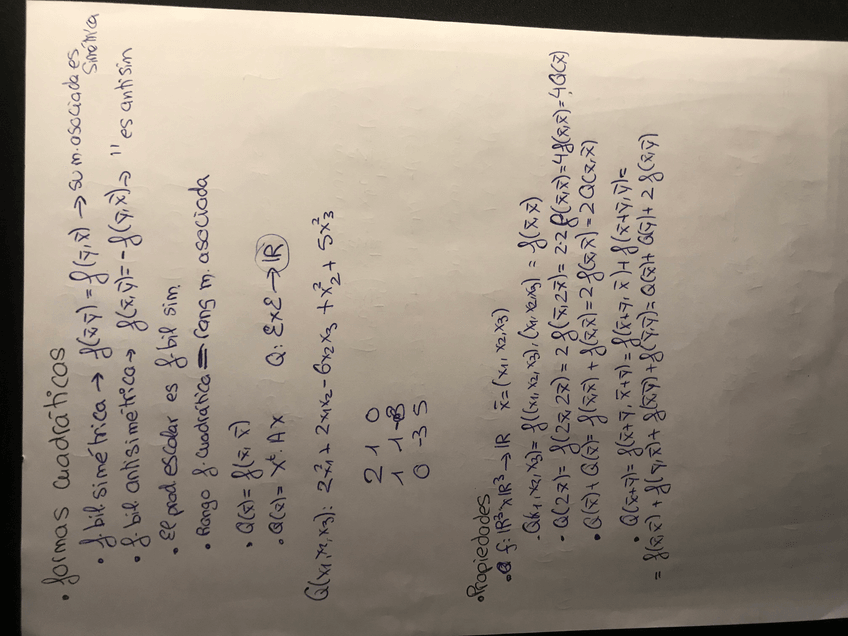 • formas cuadráticas
• f. bil simétrica → f(x̄,ȳ) = f(ȳ,x̄) → su m. asociada es simétrica
• f. bil antisimétrica → f(x̄,ȳ) = -f(ȳ,x̄) → " es antisim
• El prod escalar es f. bil sim.
• Rango f. cuadrática = rang m. asociada
• Q(x̄) = f(x̄,x̄)
• Q(x) = xᵗ·A x Q: ℰxℰ → ℝ
Q(x₁,x₂,x₃): 2x₁² + 2x₁x₂ - 6x₂x₃ + x₂² + 5x₃²
2 1 0
1 1 -3
0 -3 5
• Propiedades
• f: ℝ³xℝ³ → ℝ x̄ = (x₁,x₂,x₃)
- Q(x₁,x₂,x₃) = f((x₁,x₂,x₃),(x₁,x₂,x₃)) = f(x̄,x̄)
• Q(2x̄) = f(2x̄,2x̄) = 2 f(x̄,2x̄) = 2·2 f(x̄,x̄) = 4f(x̄,x̄) = 4Q(x̄)
• Q(x̄) + Q(x̄) = f(x̄,x̄) + f(x̄,x̄) = 2 f(x̄,x̄) = 2Q(x̄,x̄)
• Q(x̄+ȳ) = f(x̄+ȳ, x̄+ȳ) = f(x̄+ȳ, x̄) + f(x̄+ȳ, ȳ) =
= f(x̄,x̄) + f(ȳ,x̄) + f(x̄,ȳ) + f(ȳ,ȳ) = Q(x̄) + Q(ȳ) + 2 f(x̄,ȳ)